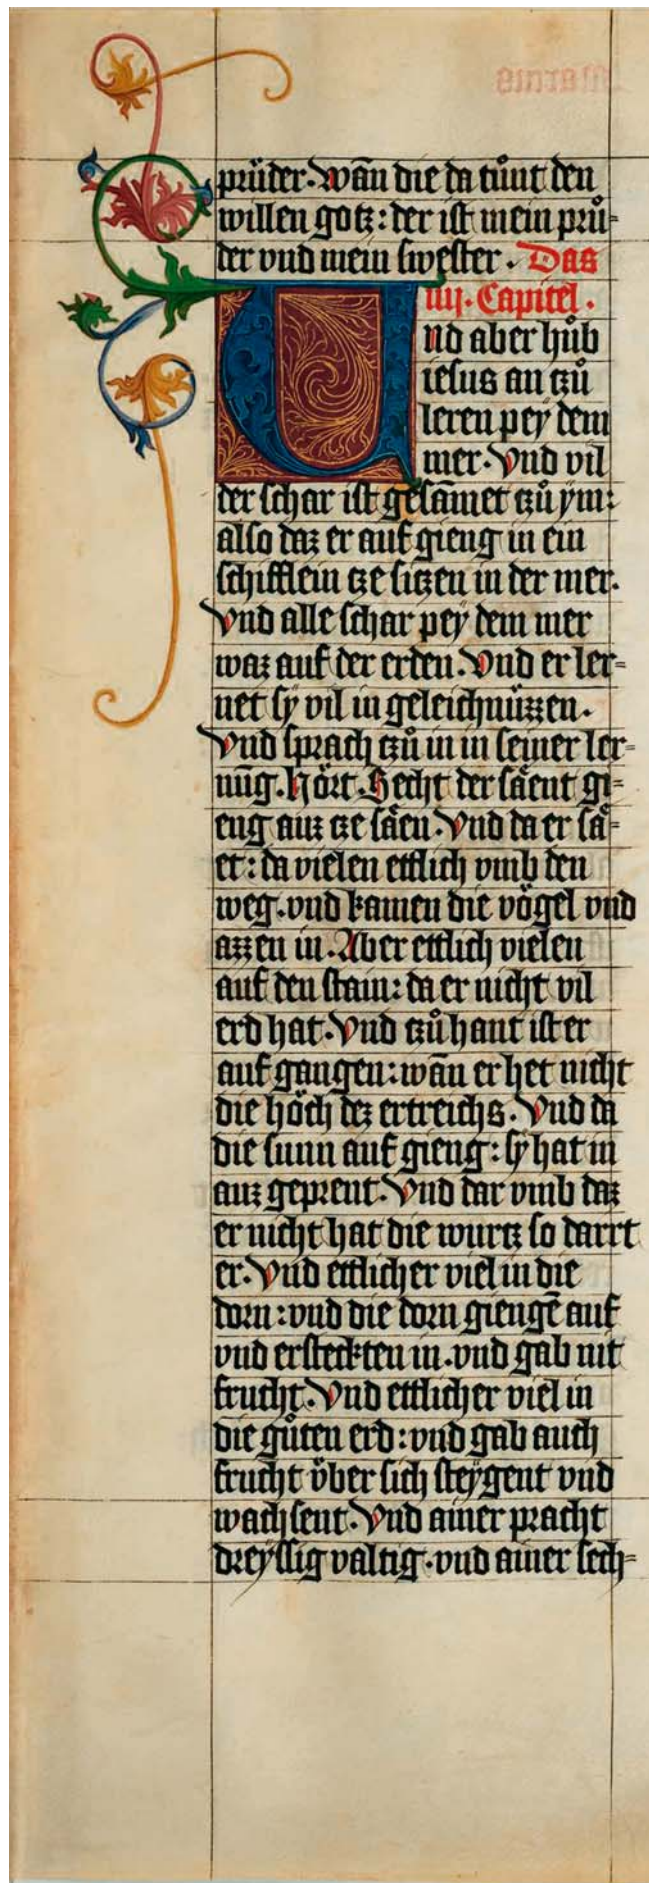 prüder. Wañ die da tůnt den
willen gotz: der ist mein prů-
der vnd mein swester. Das
iiij. Capitel.
Und aber hůb
iesus an tzů
leren pey dem
mer. Vnd vil
der schar ist gesām̄et tzů ym:
also daz er auf gieng in ein
schifflein tze sitzen in der mer.
Vnd alle schar pey dem mer
waz auf der erden. Vnd er ler-
net sy vil in geleichnüzzen.
Vnd sprach tzů in in seiner ler-
nūg. Hört. Secht der säent gi-
eng auz tze säen. Vnd da er sä-
et: da vielen ettlich vmb den
weg. vnd kamen die vögel vnd
azzen in. Aber ettlich vielen
auf den stain: da er nicht vil
erd hat. Vnd tzůhant ist er
auf gangen: wañ er het nicht
die höch dez ertreichs. Vnd da
die sunn auf gieng: sy hat in
auz geprent. Vnd dar vmb daz
er nicht hat die wurtz so darrt
er. Vnd ettlicher viel in die
dorn: vnd die dorn giengē auf
vnd ersteckten in. vnd gab nit
frucht. Vnd ettlicher viel in
die gůten erd: vnd gab auch
frucht über sich steygent vnd
wachsent. Vnd ainer pracht
dreyssig valtig. vnd ainer sech-